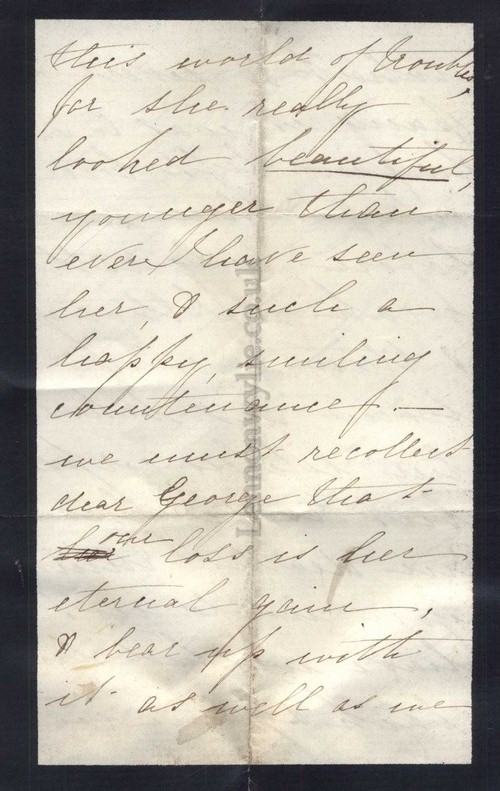 this world of troubles,
for she really
looked beautiful,
younger than
ever I have seen
her, & such a
happy, smiling
countenance. —
we must recollect
dear George that
our loss is her
eternal gain,
& bear up with
it as well as we